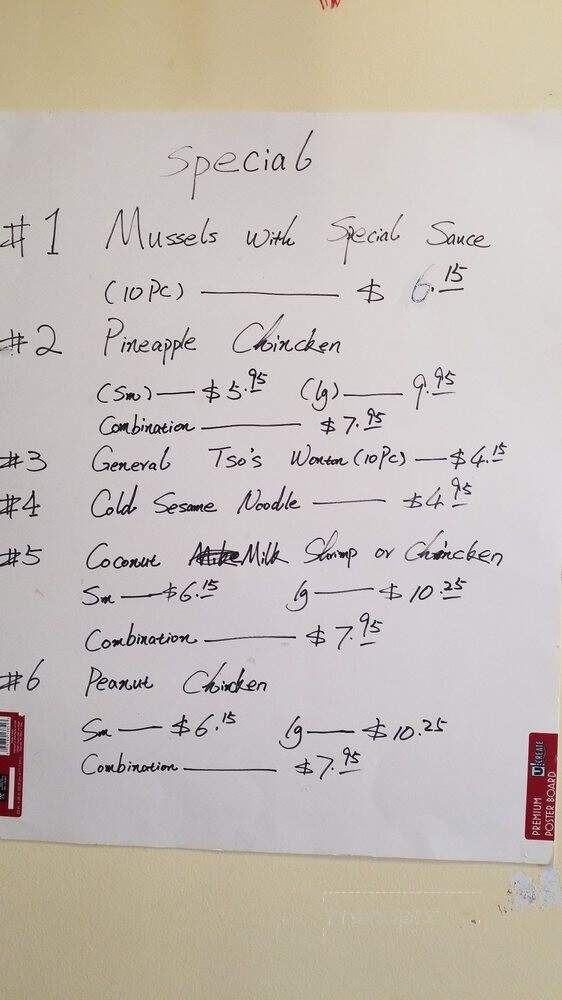 Special
#1 Mussels with Special Sauce
(10 PC) — $ 6.15
#2 Pineapple Chincken
(Sm) — $5.95 (lg) — 9.95
Combination — $7.95
#3 General Tso's Wonton (10 PC) — $4.15
#4 Cold Sesame Noodle — $4.95
#5 Coconut Milk Shrimp or Chincken
Sm — $6.15 lg — $10.25
Combination — $7.95
#6 Peanut Chicken
Sm — $6.15 lg — $10.25
Combination — $7.95
U CREATE
PREMIUM
POSTER BOARD